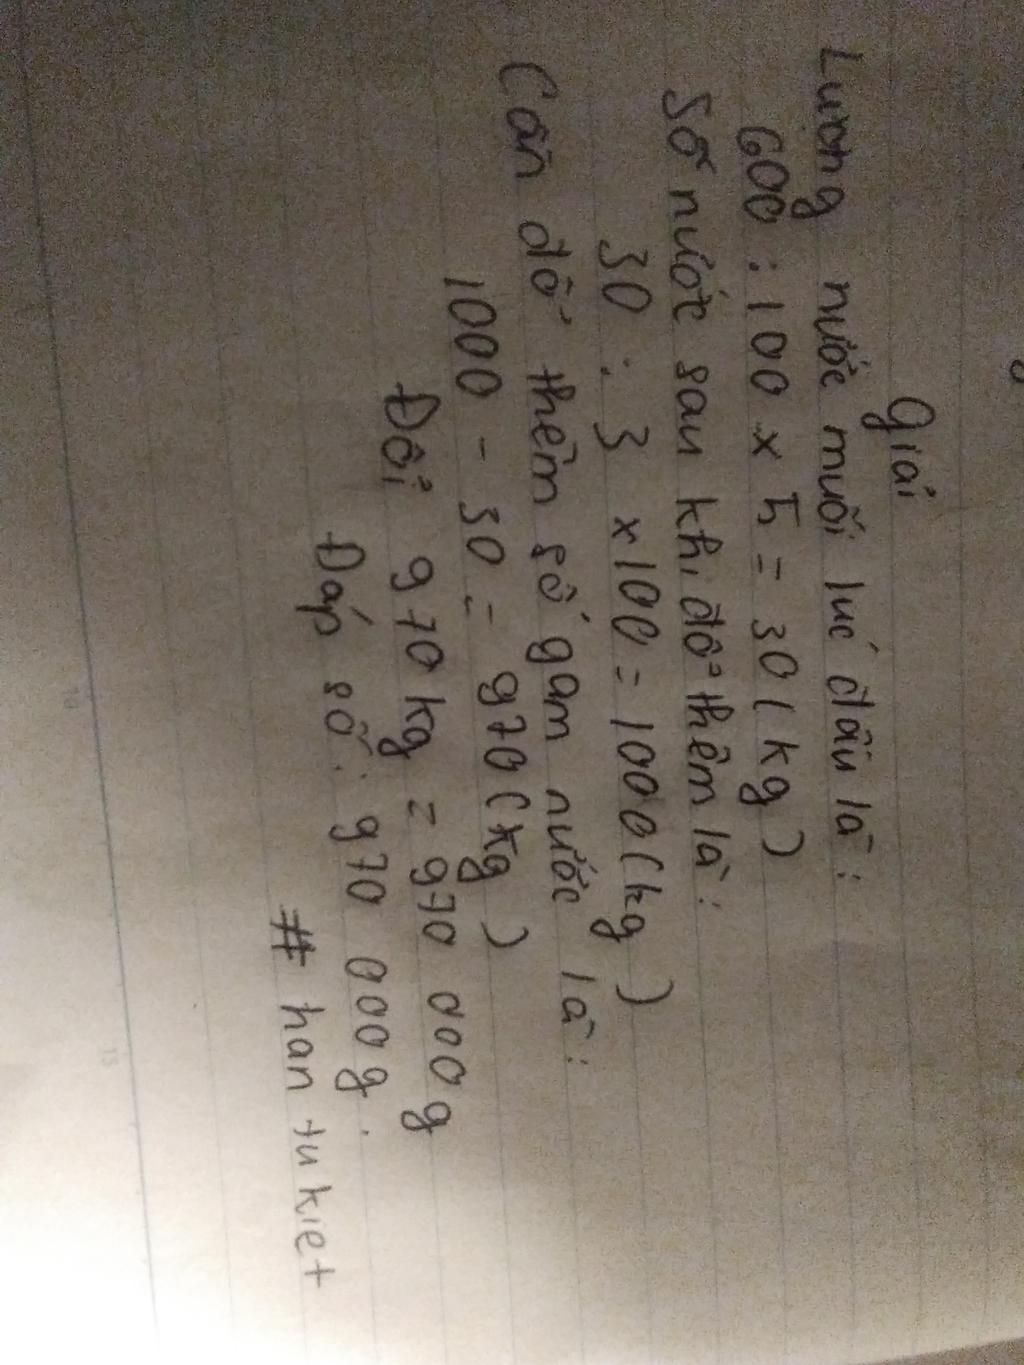 Giải
Lượng nước muối lúc đầu là:
600 : 100 x 5 = 30 (kg)
Số nước sau khi đổ thêm là:
30 : 3 x 100 = 1000 (kg)
Cần đổ thêm số gam nước là:
1000 - 30 = 970 (kg)
Đổi 970 kg = 970 000 g
Đáp số: 970 000 g.
# han tu kiet